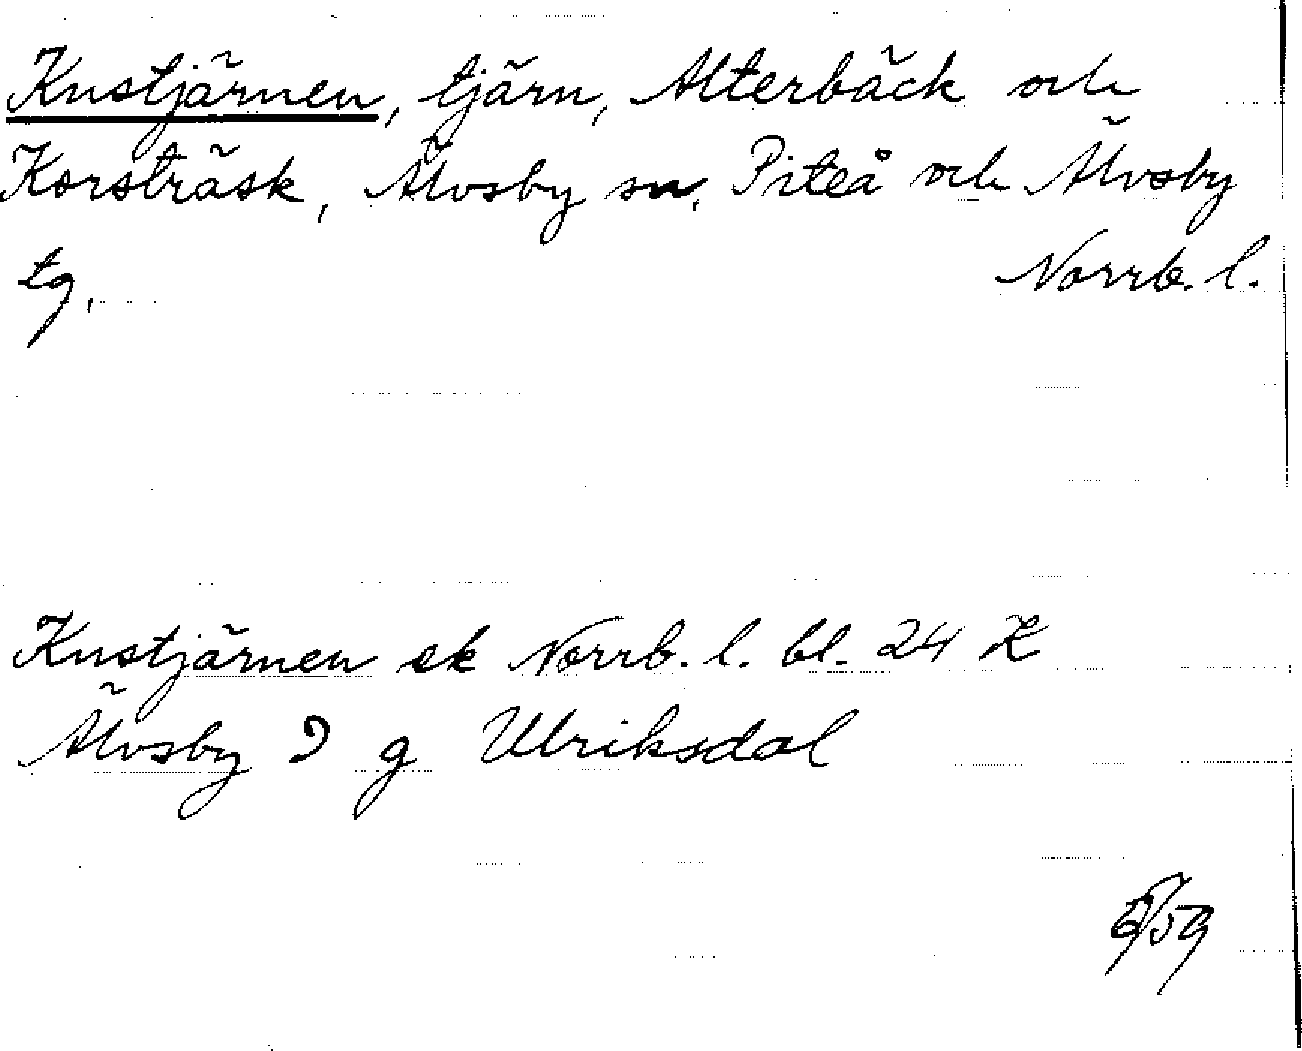 Knstjärnen, tjärn, Alterbäck och
Korsträsk, Älvsby sn, Piteå och Älvsby
tg,
Norrb. l.
Knstjärnen ek Norrb. l. bl. 24 K
Älvsby 9 g Ulriksdal
/59